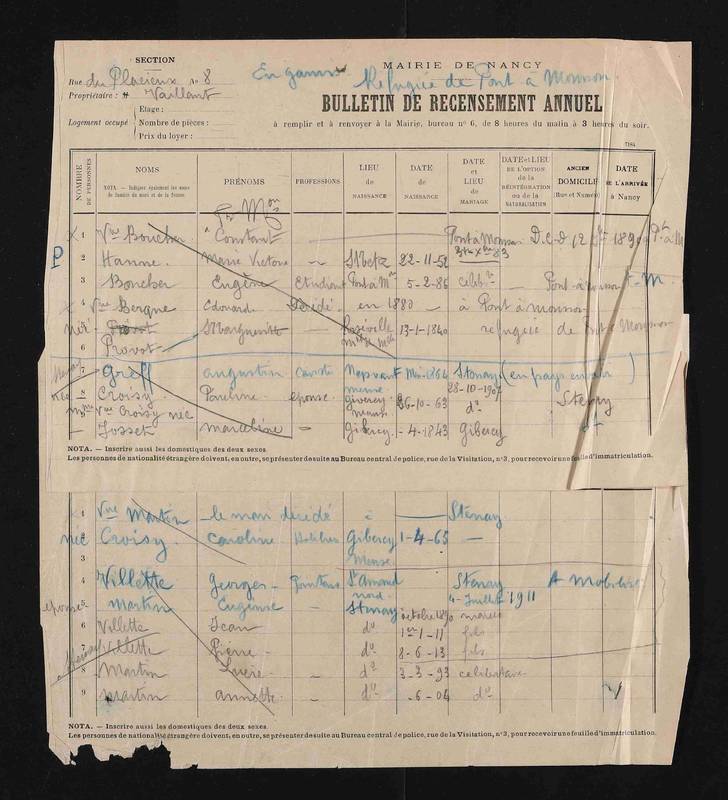 SECTION
Rue du Placieux No 8
Propriétaire : Vaillant
Etage :
Logement occupé
Nombre de pièces :
Prix du loyer :
En garni
MAIRIE DE NANCY
Refugiée de Pont à Mousson
BULLETIN DE RECENSEMENT ANNUEL
à remplir et à renvoyer à la Mairie, bureau n° 6, de 8 heures du matin à 3 heures du soir.
NOMBRE DE PERSONNES
NOMS
NOTA. — Indiquer également les noms de famille du mari et de la femme.
PRÉNOMS
PROFESSIONS
LIEU de NAISSANCE
DATE de NAISSANCE
DATE et LIEU de MARIAGE
DATE et LIEU DE L'OPTION DE LA RÉINTÉGRATION ou de la NATURALISATION
ANCIEN DOMICILE (Rue et Numéro)
DATE DE L'ARRIVÉE à Nancy
1 Vve Boucher Constant — Pont à Mousson
P
2 Hanne Marie Victorine 22-11-52
3 Boucher Eugène Etudiant Pont à Mon 5-2-86 célibre — Pont-à-Mousson
4 Vve Bergne Edouard Décédé en 1880 — à Pont à Mousson
5 née Provot Marguerite — 13-1-1840 refugiée de Pont à Mousson
6 Provot
7 Greff Augustin 1864 Stenay (en pays envahi)
28-10-1907
8 Croisy Pauline épouse 26-10-63 do Stenay
Vve Croisy née
Josset Marceline Gibercy -4-1843 Gibercy
NOTA. — Inscrire aussi les domestiques des deux sexes.
Les personnes de nationalité étrangère doivent, en outre, se présenter de suite au Bureau central de police, rue de la Visitation, n° 3, pour recevoir une feuille d'immatriculation.
1 Vve Martin le mari décédé — Stenay
2 née Croisy Caroline Gibercy 1-4-65 —
3 Meuse
4 Villette Georges St Amand Stenay A Mobilisé
nord 4 Juillet 1911
5 épouse Martin Eugénie — Stenay octobre 1890 mariée
6 Villette Jean do 1er-1-11 fils
7 Villette Pierre do 8-6-13 fils
8 Martin Lucie do 3-3-93 célibataire
9 Martin Annette do -6-04 do
NOTA. — Inscrire aussi les domestiques des deux sexes.
Les personnes de nationalité étrangère doivent, en outre, se présenter de suite au Bureau central de police, rue de la Visitation, n° 3, pour recevoir une feuille d'immatriculation.